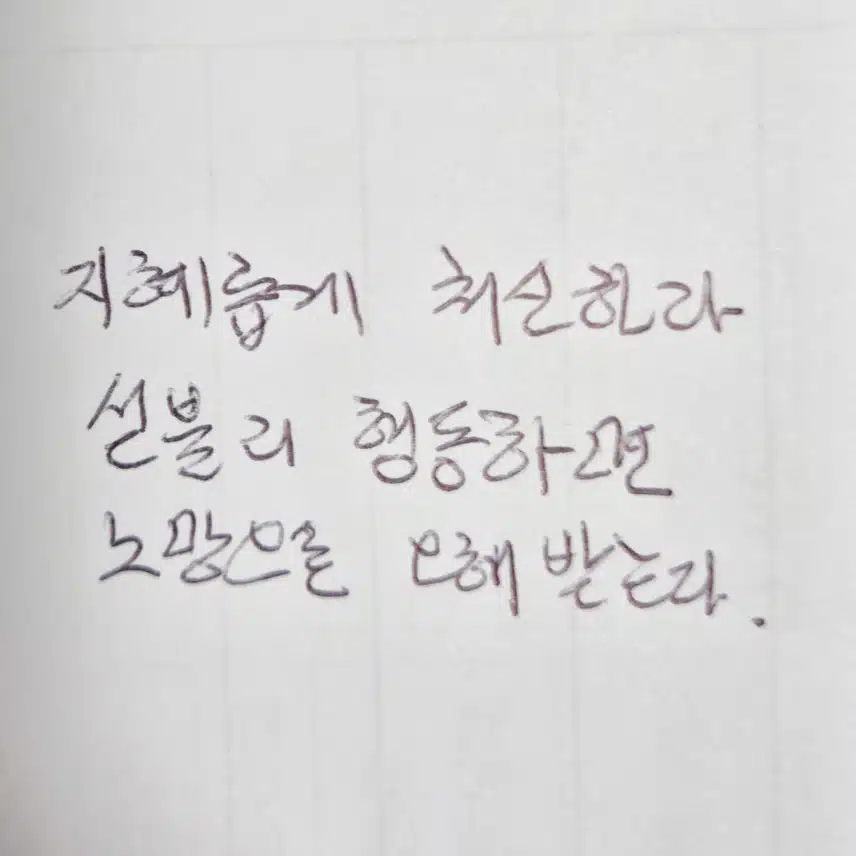 지혜롭게 처신하라
섣불리 행동하면
노망으로 오해 받는다.